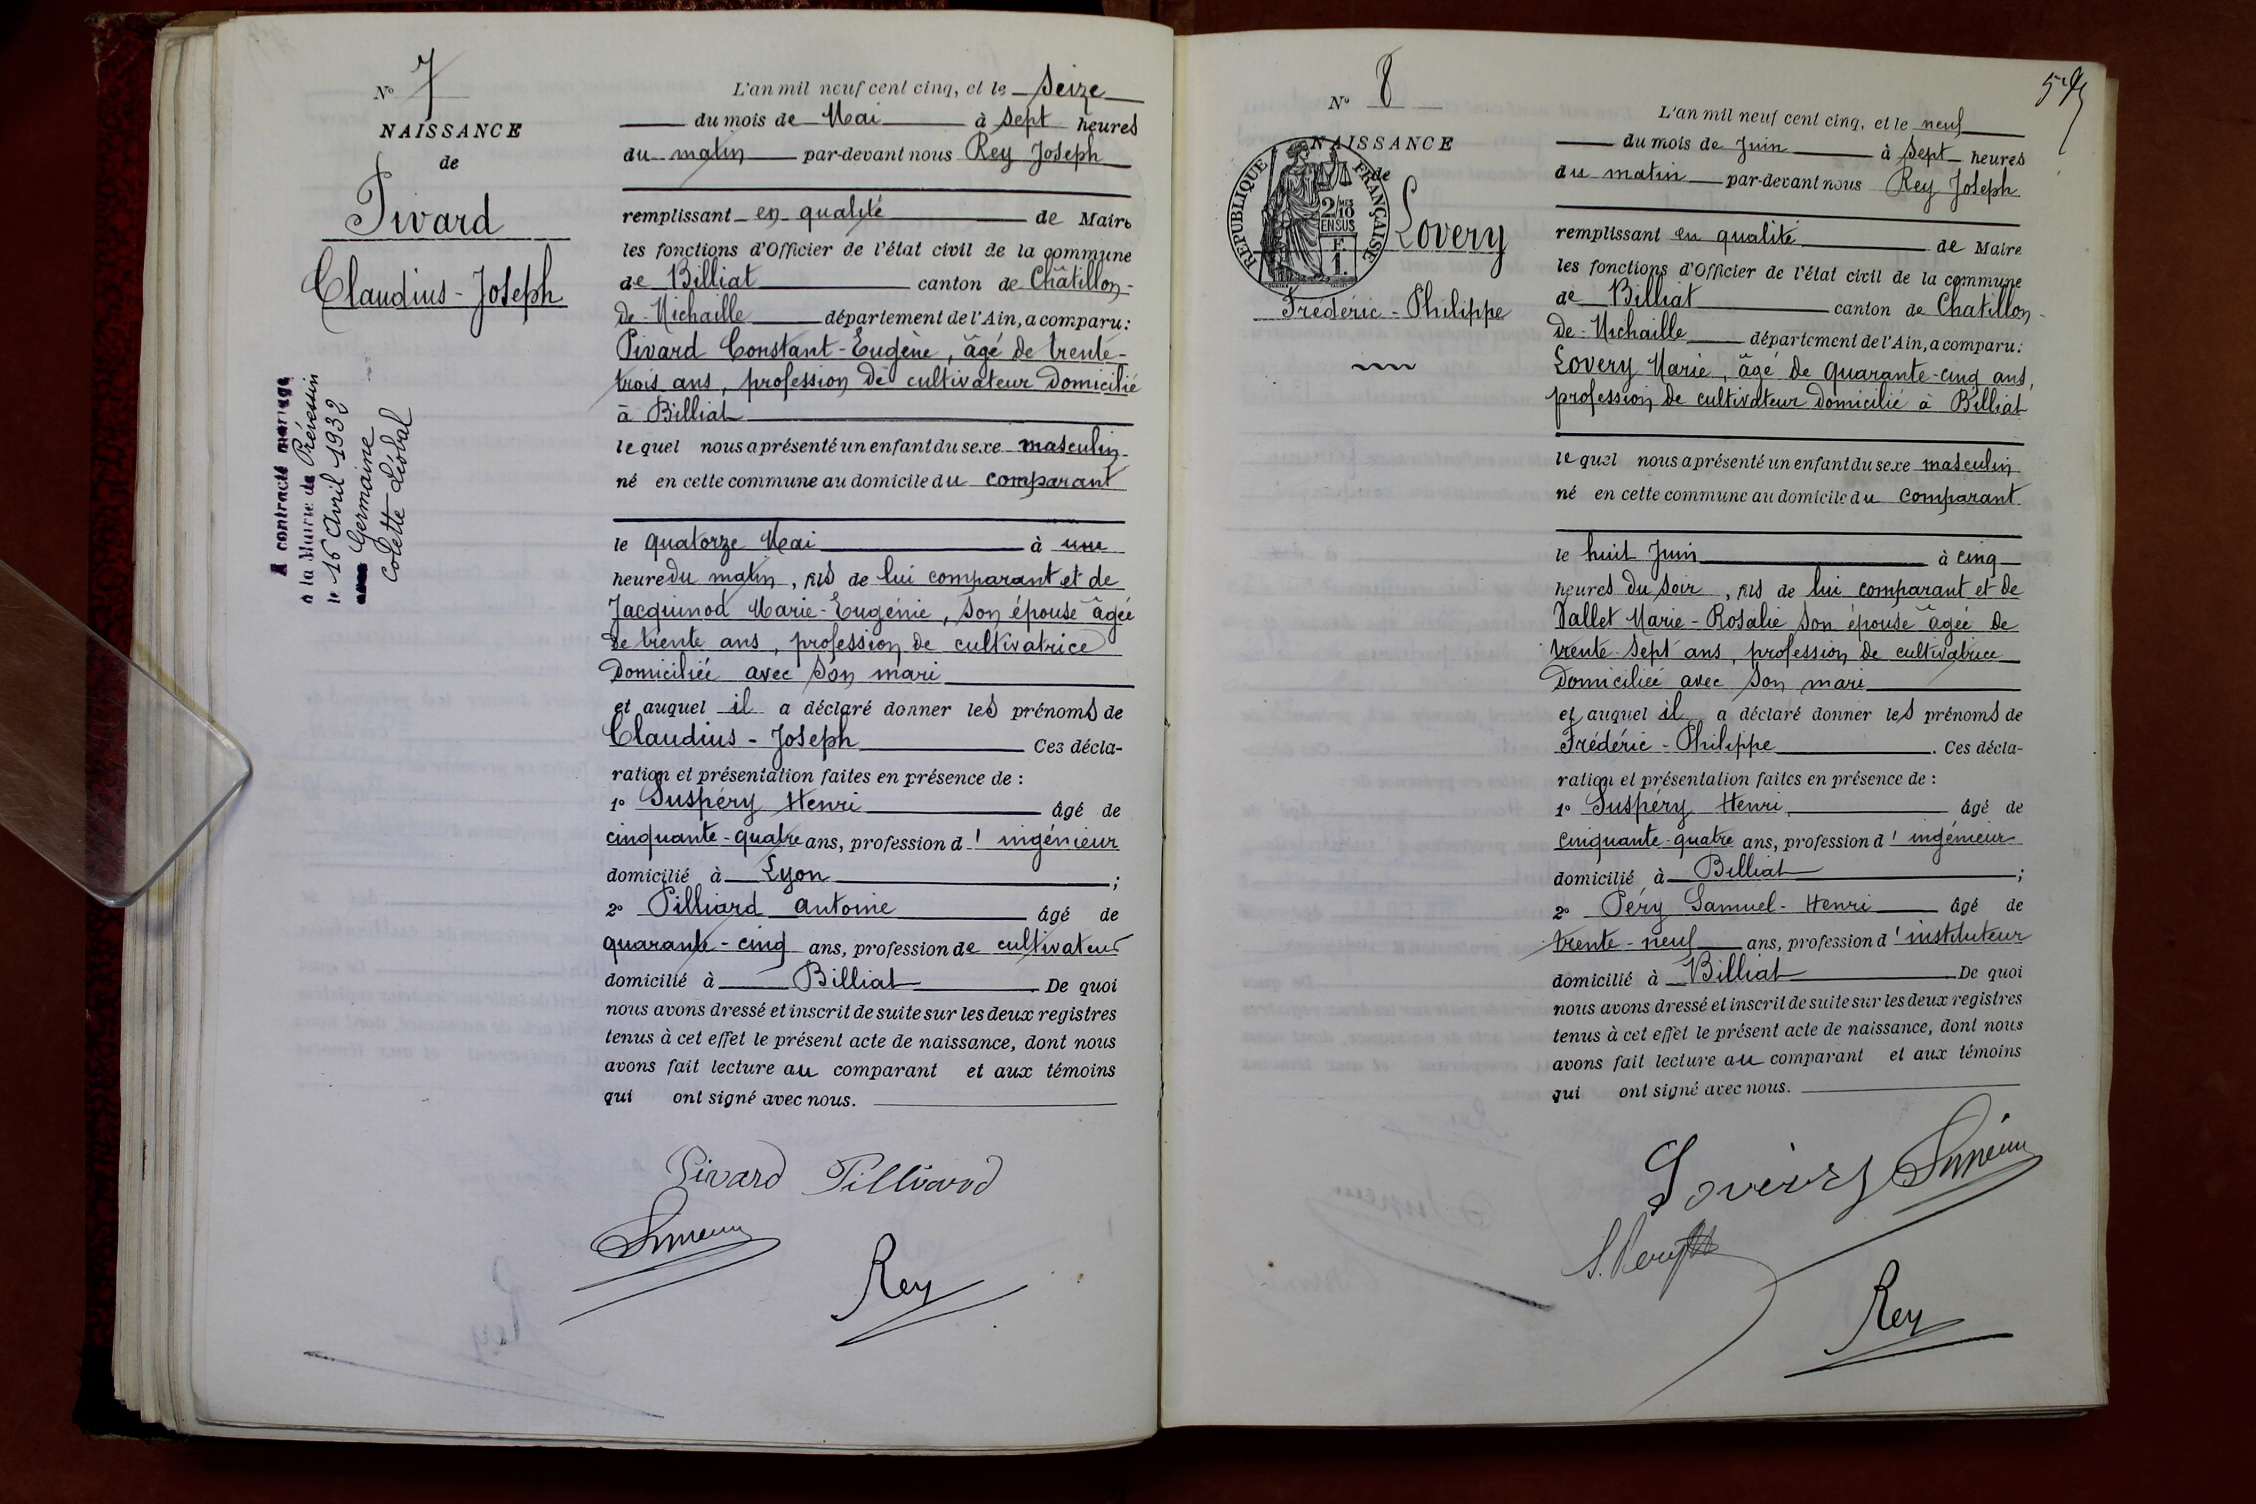 N° 7
NAISSANCE
de
Pivard
Claudius-Joseph
A contracté mariage
à la Mairie de Prévessin
le 16 Avril 1932
avec Germaine
Colette Léobal
L'an mil neuf cent cinq, et le Seize
du mois de Mai à sept heures
du matin par-devant nous Rey Joseph
remplissant en qualité de Maire
les fonctions d'Officier de l'état civil de la commune
de Billiat canton de Châtillon-
de-Michaille département de l'Ain, a comparu:
Pivard Constant-Eugène, âgé de trente-
trois ans, profession de cultivateur domicilié
à Billiat
lequel nous a présenté un enfant du sexe masculin
né en cette commune au domicile du comparant
le quatorze Mai à une
heure du matin, fils de lui comparant et de
Jacquinod Marie-Eugénie, son épouse âgée
de trente ans, profession de cultivatrice
domiciliée avec son mari
et auquel il a déclaré donner les prénoms de
Claudius-Joseph Ces décla-
ration et présentation faites en présence de :
1° Suspéry Henri âgé de
cinquante-quatre ans, profession d'ingénieur
domicilié à Lyon ;
2° Pilliard Antoine âgé de
quarante-cinq ans, profession de cultivateur
domicilié à Billiat De quoi
nous avons dressé et inscrit de suite sur les deux registres
tenus à cet effet le présent acte de naissance, dont nous
avons fait lecture au comparant et aux témoins
qui ont signé avec nous.
Pivard Pilliard
Rey
N° 8
NAISSANCE
de
REPUBLIQUE FRANÇAISE
2/10
EN SUS
F.
1.
Lovery
Frédéric-Philippe
L'an mil neuf cent cinq, et le neuf
du mois de Juin à sept heures
du matin par-devant nous Rey Joseph
remplissant en qualité de Maire
les fonctions d'Officier de l'état civil de la commune
de Billiat canton de Chatillon-
de-Michaille département de l'Ain, a comparu:
Lovery Marie, âgé de quarante-cinq ans,
profession de cultivateur domicilié à Billiat
lequel nous a présenté un enfant du sexe masculin
né en cette commune au domicile du comparant
le huit Juin à cinq
heures du soir, fils de lui comparant et de
Vallet Marie-Rosalie son épouse âgée de
trente-sept ans, profession de cultivatrice
domiciliée avec son mari
et auquel il a déclaré donner les prénoms de
Frédéric-Philippe . Ces décla-
ration et présentation faites en présence de :
1° Suspéry Henri âgé de
cinquante-quatre ans, profession d'ingénieur
domicilié à Billiat ;
2° Péry Samuel-Henri âgé de
trente-neuf ans, profession d'instituteur
domicilié à Billiat De quoi
nous avons dressé et inscrit de suite sur les deux registres
tenus à cet effet le présent acte de naissance, dont nous
avons fait lecture au comparant et aux témoins
qui ont signé avec nous.
S. Pery
Rey